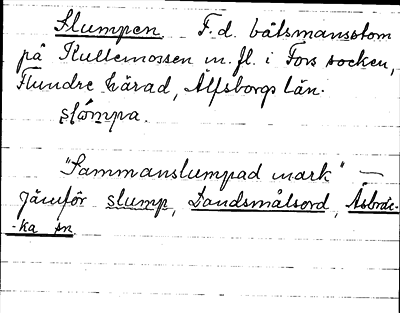 Slumpen F.d. båtsmanstom
på Kullemossen m.fl. i Fors socken,
Flundre härad, Älfsborgs län.
slömpa.
"Sammanslumpad mark" —
Jämför slump, Landsmålsord, Åsbräc-
-ka sn